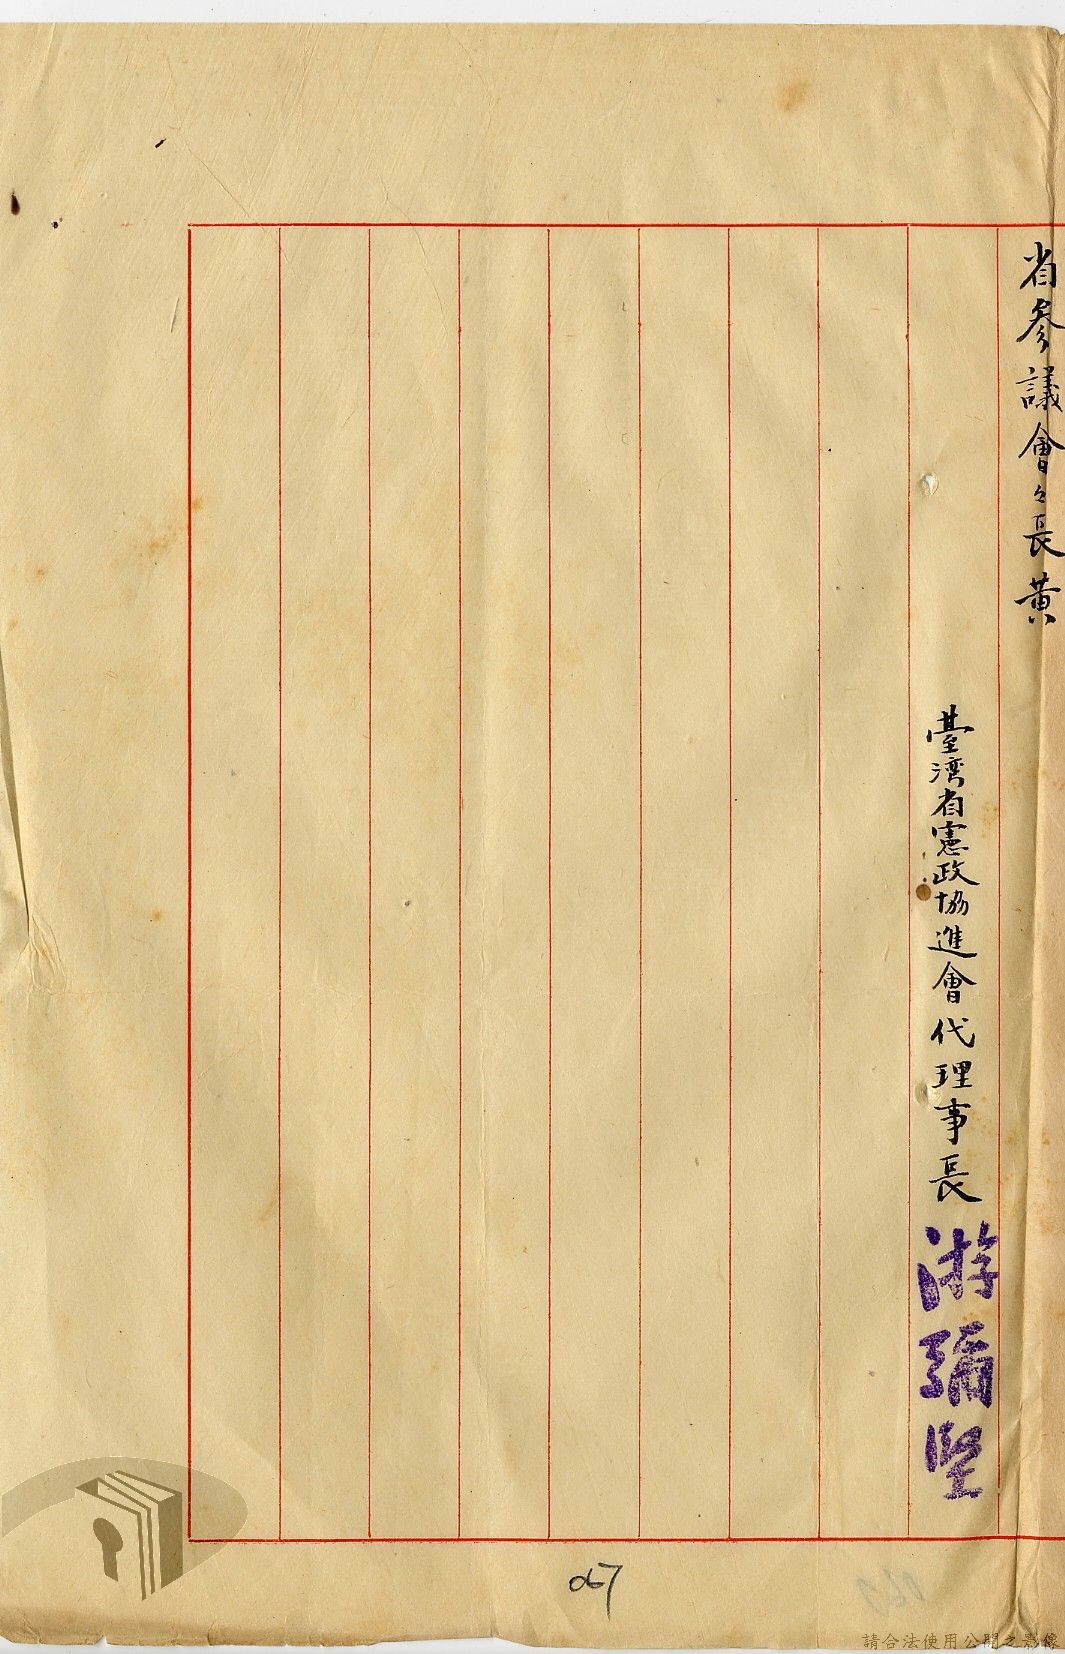 省參議會々長黃
臺湾省憲政協進會代理事長
游彌堅
067
請合法使用公開之影像